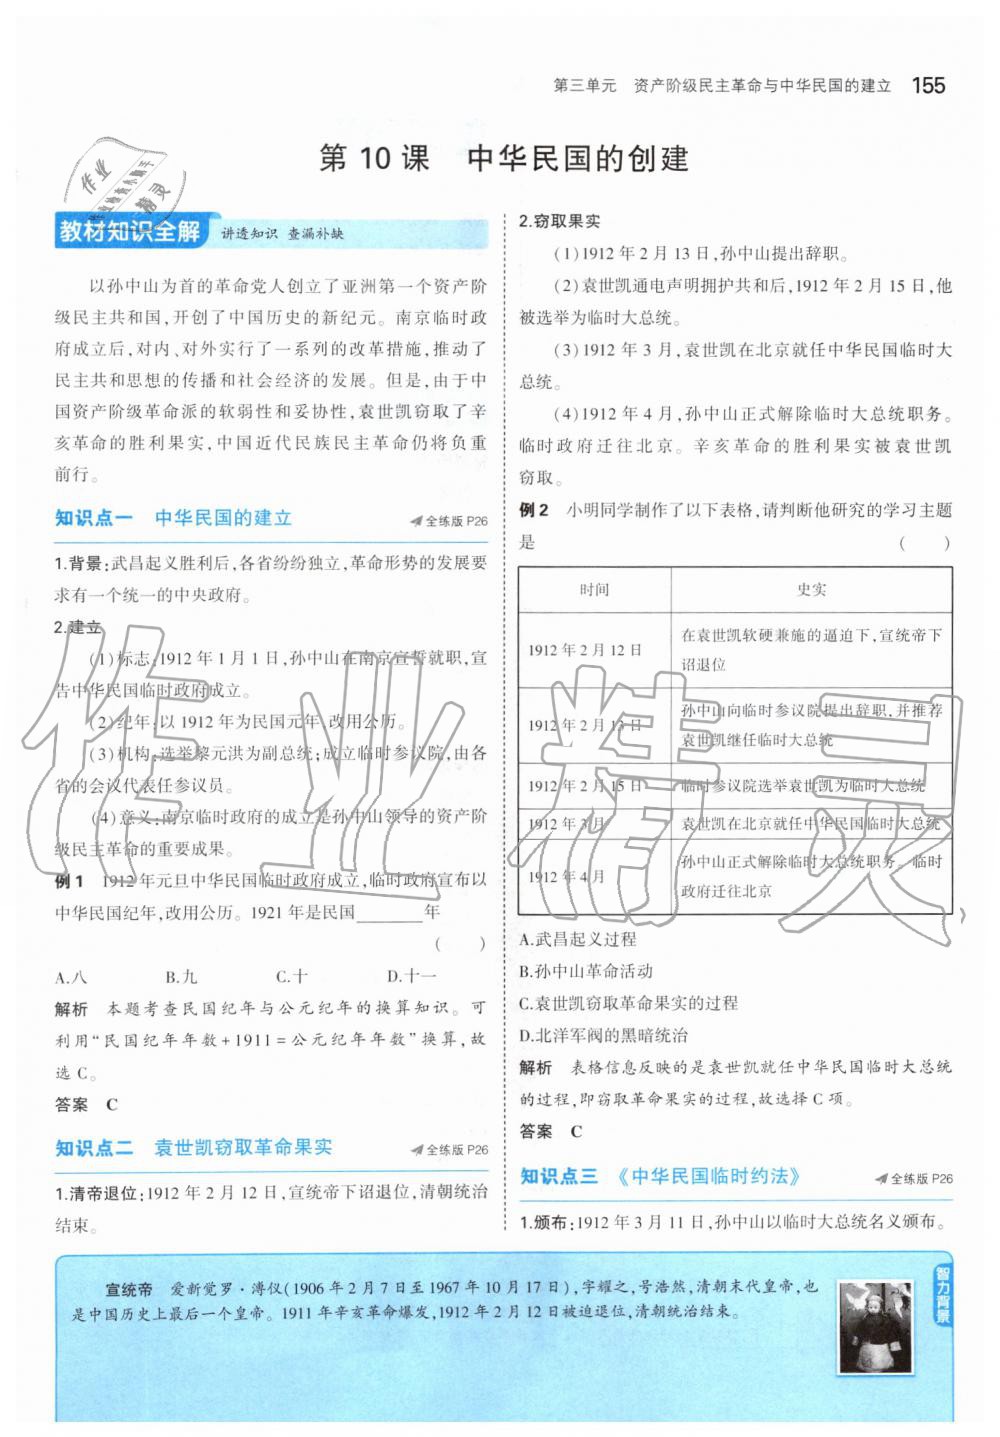 第三单元 资产阶级民主革命与中华民国的建立 155
第 10 课 中华民国的创建
教材知识全解 讲透知识 查漏补缺
以孙中山为首的革命党人创立了亚洲第一个资产阶
级民主共和国,开创了中国历史的新纪元。南京临时政
府成立后,对内、对外实行了一系列的改革措施,推动了
民主共和思想的传播和社会经济的发展。但是,由于中
国资产阶级革命派的软弱性和妥协性,袁世凯窃取了辛
亥革命的胜利果实,中国近代民族民主革命仍将负重
前行。
知识点一 中华民国的建立 全练版 P26
1.背景:武昌起义胜利后,各省纷纷独立,革命形势的发展要
求有一个统一的中央政府。
2.建立
(1)标志:1912 年 1 月 1 日,孙中山在南京宣誓就职,宣
告中华民国临时政府成立。
(2)纪年:以 1912 年为民国元年,改用公历。
(3)机构:选举黎元洪为副总统;成立临时参议院,由各
省的会议代表任参议员。
(4)意义:南京临时政府的成立是孙中山领导的资产阶
级民主革命的重要成果。
例 1 1912 年元旦中华民国临时政府成立,临时政府宣布以
中华民国纪年,改用公历。1921 年是民国________年
( )
A.八 B.九 C.十 D.十一
解析 本题考查民国纪年与公元纪年的换算知识。可
利用“民国纪年年数+1911=公元纪年年数”换算,故
选 C。
答案 C
知识点二 袁世凯窃取革命果实 全练版 P26
1.清帝退位:1912 年 2 月 12 日,宣统帝下诏退位,清朝统治
结束。
2.窃取果实
(1)1912 年 2 月 13 日,孙中山提出辞职。
(2)袁世凯通电声明拥护共和后,1912 年 2 月 15 日,他
被选举为临时大总统。
(3)1912 年 3 月,袁世凯在北京就任中华民国临时大
总统。
(4)1912 年 4 月,孙中山正式解除临时大总统职务。
临时政府迁往北京。辛亥革命的胜利果实被袁世凯
窃取。
例 2 小明同学制作了以下表格,请判断他研究的学习主题
是 ( )
时间 史实
1912 年 2 月 12 日 在袁世凯软硬兼施的逼迫下,宣统帝下
诏退位
1912 年 2 月 13 日 孙中山向临时参议院提出辞职,并推荐
袁世凯继任临时大总统
1912 年 2 月 15 日 临时参议院选举袁世凯为临时大总统
1912 年 3 月 袁世凯在北京就任中华民国临时大总统
1912 年 4 月 孙中山正式解除临时大总统职务。临时
政府迁往北京
A.武昌起义过程
B.孙中山革命活动
C.袁世凯窃取革命果实的过程
D.北洋军阀的黑暗统治
解析 表格信息反映的是袁世凯就任中华民国临时大总统
的过程,即窃取革命果实的过程,故选择 C 项。
答案 C
知识点三 《中华民国临时约法》 全练版 P26
1.颁布:1912 年 3 月 11 日,孙中山以临时大总统名义颁布。
智力背景
宣统帝 爱新觉罗·溥仪(1906 年 2 月 7 日至 1967 年 10 月 17 日),字耀之,号浩然,清朝末代皇帝,也
是中国历史上最后一个皇帝。1911 年辛亥革命爆发,1912 年 2 月 12 日被迫退位,清朝统治结束。
作业精灵